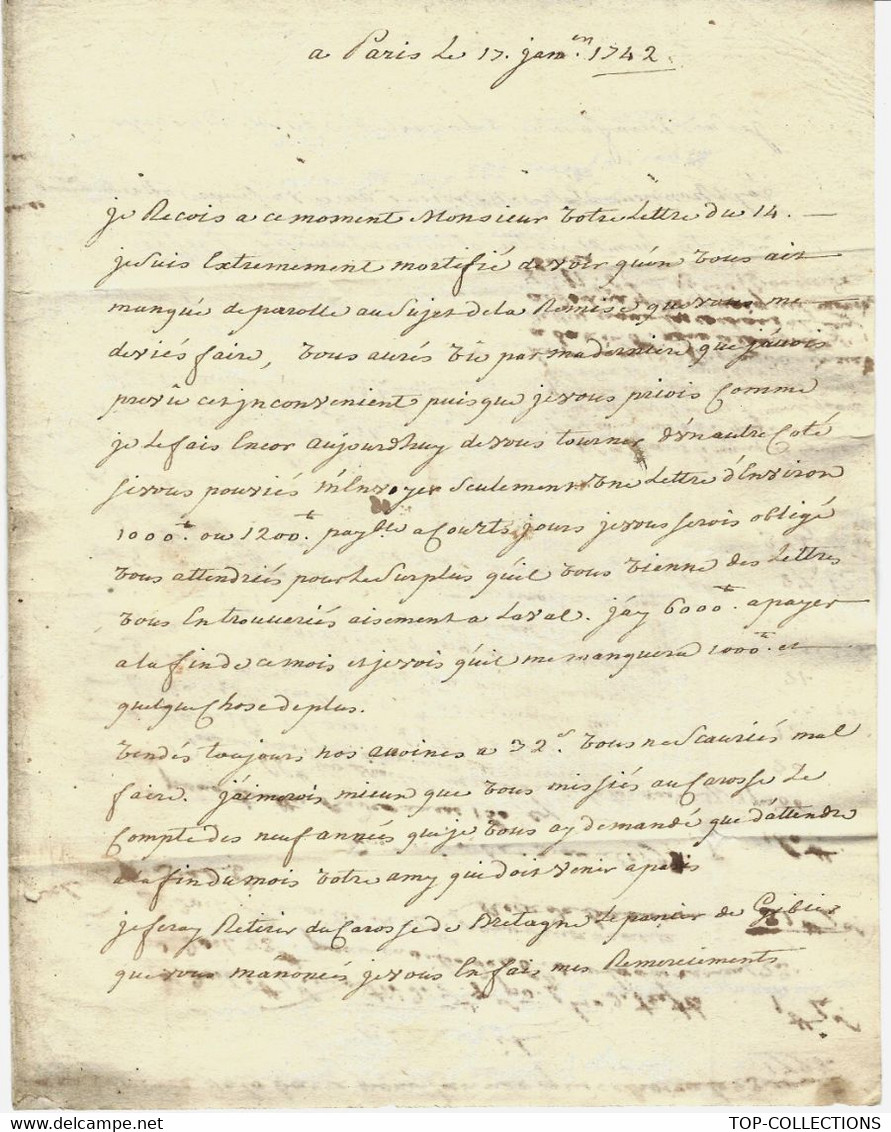 a Paris Le 17. janv.en 1742
je Recois a ce moment Monsieur votre Lettre du 14.
je suis Extremement mortifié de voir qu'on vous ait
manqué de parolle au sujet de la Remise que vous me
deviés faire, vous aurés vû par ma derniere que j'avois
prevû cet jnconvenient puisque je vous priois Comme
je Le fais Encor aujourdhuy de vous tourner d'un autre Coté
si vous pouviés m'Envoyer seulement une Lettre d'Environ
1000tt. ou 1200tt. payble a Courts jours je vous serois obligé
vous attendriés pour Le surplus qu'il vous vienne des Lettres
vous En trouveriés aisement a Laval. j'ay 6000tt. a payer
a la fin de ce mois et je vois qu'il me manquera 1000tt. et
quelque Chose de plus.
vendés toujours nos avoines a 32s. vous ne Scauriés mal
faire. j'aimerois mieux que vous missiés au Carosse Le
Compte des neuf années que je vous ay demandé que d'attendre
a la fin du mois votre amy qui doit venir a paris
je feray Retirer du Carosse de Bretagne Le panier de Gibier
que vous m'anoncés je vous En fais mes Remerciments
TOP-COLLECTIONS